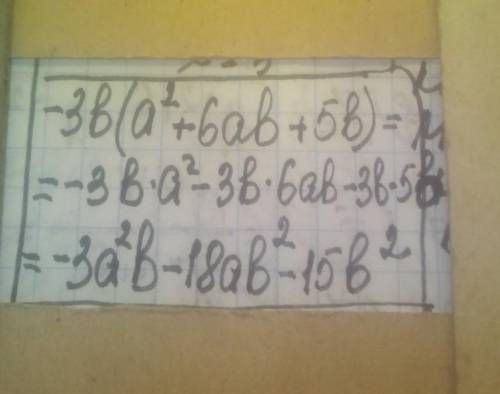 -3b(a²+6ab+5b)=
=-3b·a²-3b·6ab-3b·5b
=-3a²b-18ab²-15b²